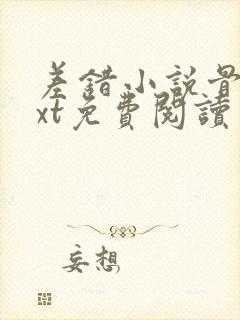 差錯小説最
xt免費閱讀
妄想